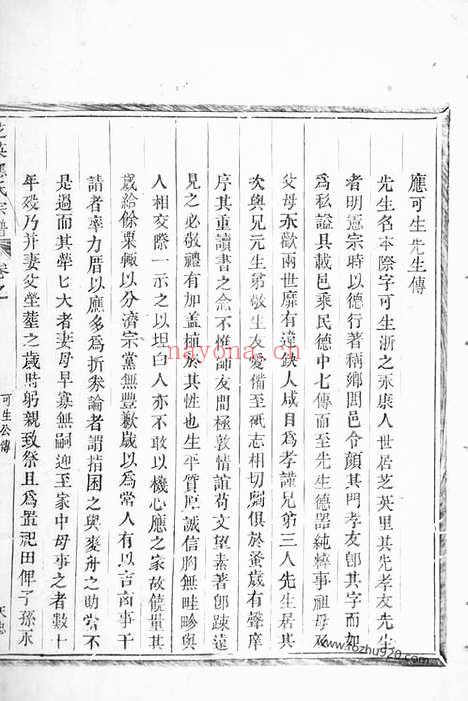 應可生先生傳
先生名本際字可生浙之永康人世居芝英里其先孝友先生
者明憲宗時以德行著稱鄉閭邑令顏其門孝友郎其字而加
為私謚具載邑乘民德中七傳而至先生德器純粹事祖母及
父母永歡兩世靡有違鈌人咸目為孝謹兄弟三人先生居其
次與兄元生弟敬生友愛備至砥志相切劘俱於黌歲有聲庠
序其重讀書之念不惟師友間極敦情誼苟文望素著郎疎遠
見之必敬禮有加盖植於其性也生平質厚誠信胸無畦畛與
人相交際一示之以坦白人亦不敢以機心應之家故饒量其
歲給餘粟輒以分濟宗黨無豐歉歲以為常人有以吉凶事干
請者率力厝以應多為折券論者謂指囷之與麥舟之助當不
是過而其犖匕大者妻母早寡無嗣迎至家中母事之者數十
年歿乃并妻父塋葬之歲時躬親致祭且為置祀田俾子孫永
芝英應氏宗譜
卷之
可生公傳
nayona.cn
www.fozhu920.com